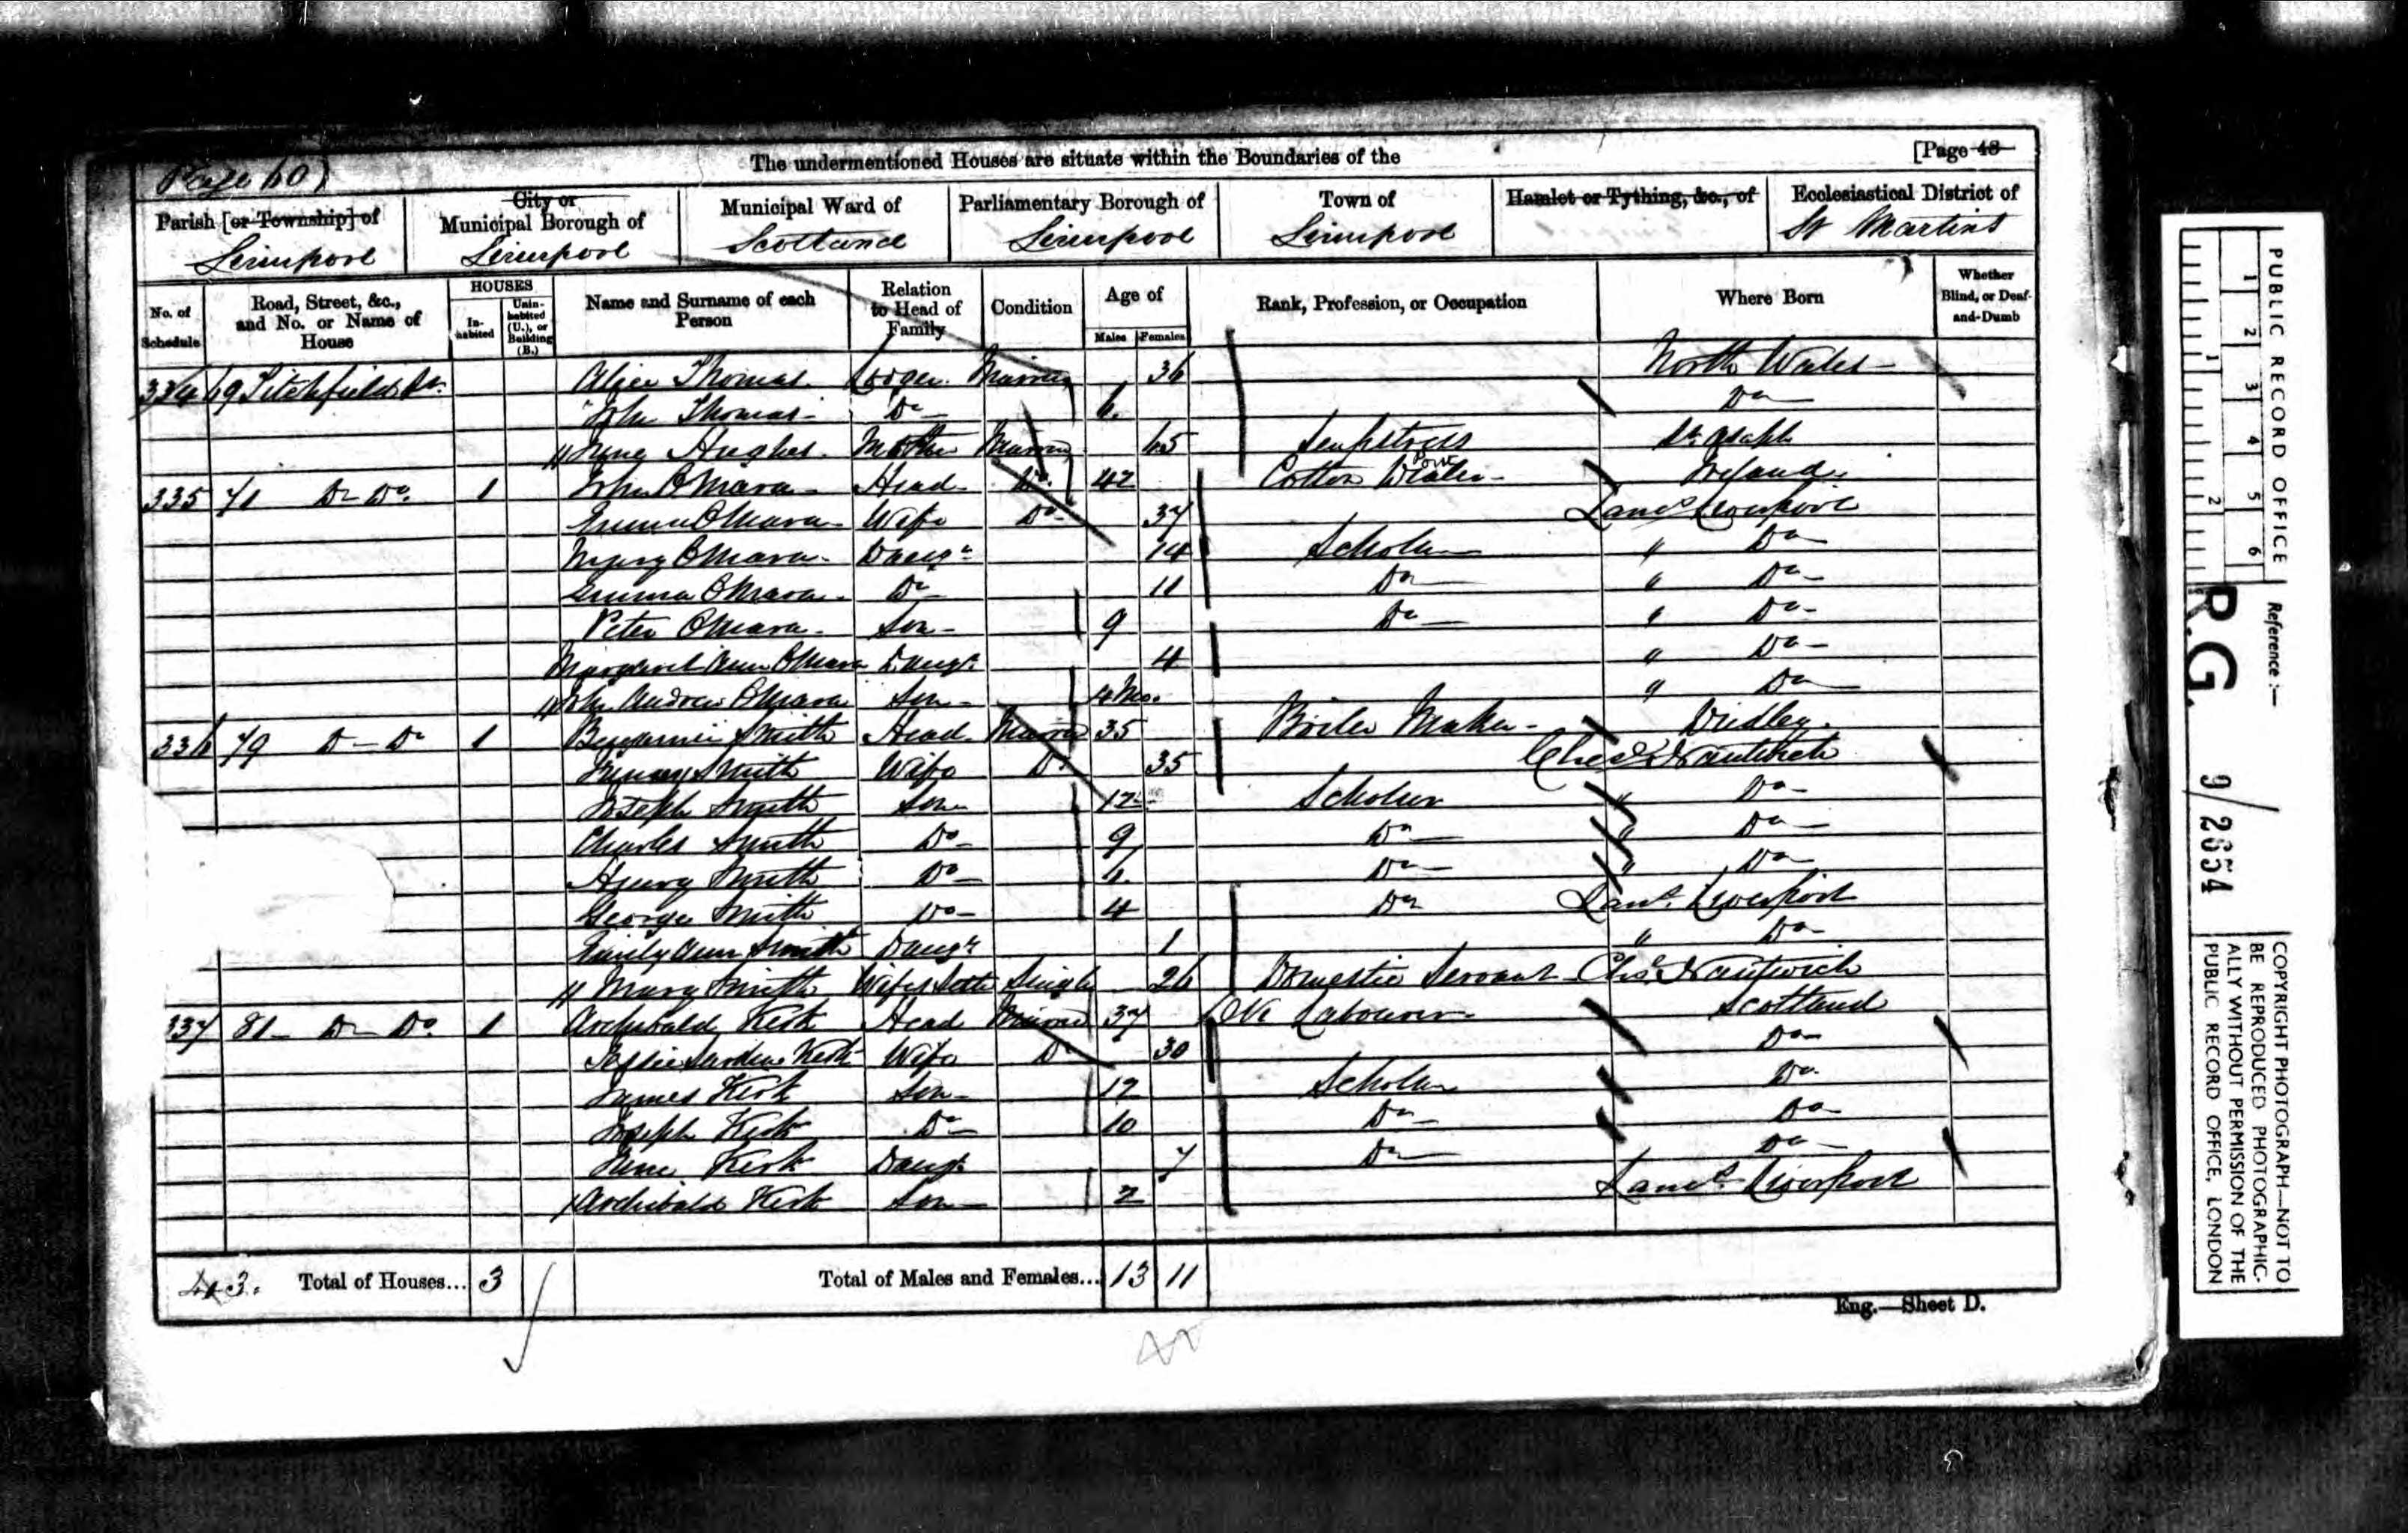 Page 60)
The undermentioned Houses are situate within the Boundaries of the
[Page 48
Parish [or Township] of
Liverpool
City or Municipal Borough of
Liverpool
Municipal Ward of
Scotland
Parliamentary Borough of
Liverpool
Town of
Liverpool
Hamlet or Tything, &c., of
Ecclesiastical District of
St Martins
No. of Schedule
Road, Street, &c., and No. or Name of House
HOUSES
In-habited
Unin-habited (U.), or Building (B.)
Name and Surname of each Person
Relation to Head of Family
Condition
Age of
Males
Females
Rank, Profession, or Occupation
Where Born
Whether Blind, or Deaf-and-Dumb
334 69 Titchfield St. Alice Thomas Lodger Married 36 North Wales
John Thomas Do 6 Do
Jane Hughes Mother Married 65 Sempstress St Asaph
335 71 Do Do 1 John O'Mara Head Do 42 Cotton Porter Ireland
Emma O'Mara Wife Do 37 Lancs Liverpool
Mary O'Mara Daugr 14 Scholar " Do
Emma O'Mara Do 11 Do " Do
Peter O'Mara Son 9 Do " Do
Margaret Ann O'Mara Daugr 4 " Do
John Andrew O'Mara Son 4 Mo. " Do
336 79 Do Do 1 Benjamin Smith Head Married 35 Boiler Maker
Smith Wife Do 35 Ches Nantwich
Joseph Smith Son 12 Scholar " Do
Charles Smith Do 9 Do " Do
Henry Smith Do 6 Do " Do
George Smith Do 4 Do Lancs Liverpool
Emily Ann Smith Daugr 1 " Do
Mary Smith Wifes Sister Single 26 Domestic Servant Ches Nantwich
337 81 Do Do 1 Archibald Kirk Head Married 37 Labourer Scotland
Jessie Kirk Wife Do 30 Do
James Kirk Son 12 Scholar Do
Joseph Kirk Do 10 Do Do
Jane Kirk Daugr 7 Do Do
Archibald Kirk Son 2 Lancs Liverpool
Total of Houses... 3
Total of Males and Females... 13 11
Eng.—Sheet D.
PUBLIC RECORD OFFICE
1 2 3 4 5 6
1 2
Reference :—
R.G. 9/2654
COPYRIGHT PHOTOGRAPH—NOT TO
BE REPRODUCED PHOTOGRAPHIC-
ALLY WITHOUT PERMISSION OF THE
PUBLIC RECORD OFFICE, LONDON